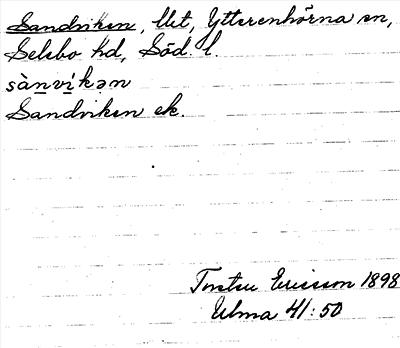 Sandviken, lht, Ytterenhörna sn,
Selebo hd, Söd l.
sànvi̱kən
Sandviken ek.
Torsten Ericsson 1898
Ulma 41:50